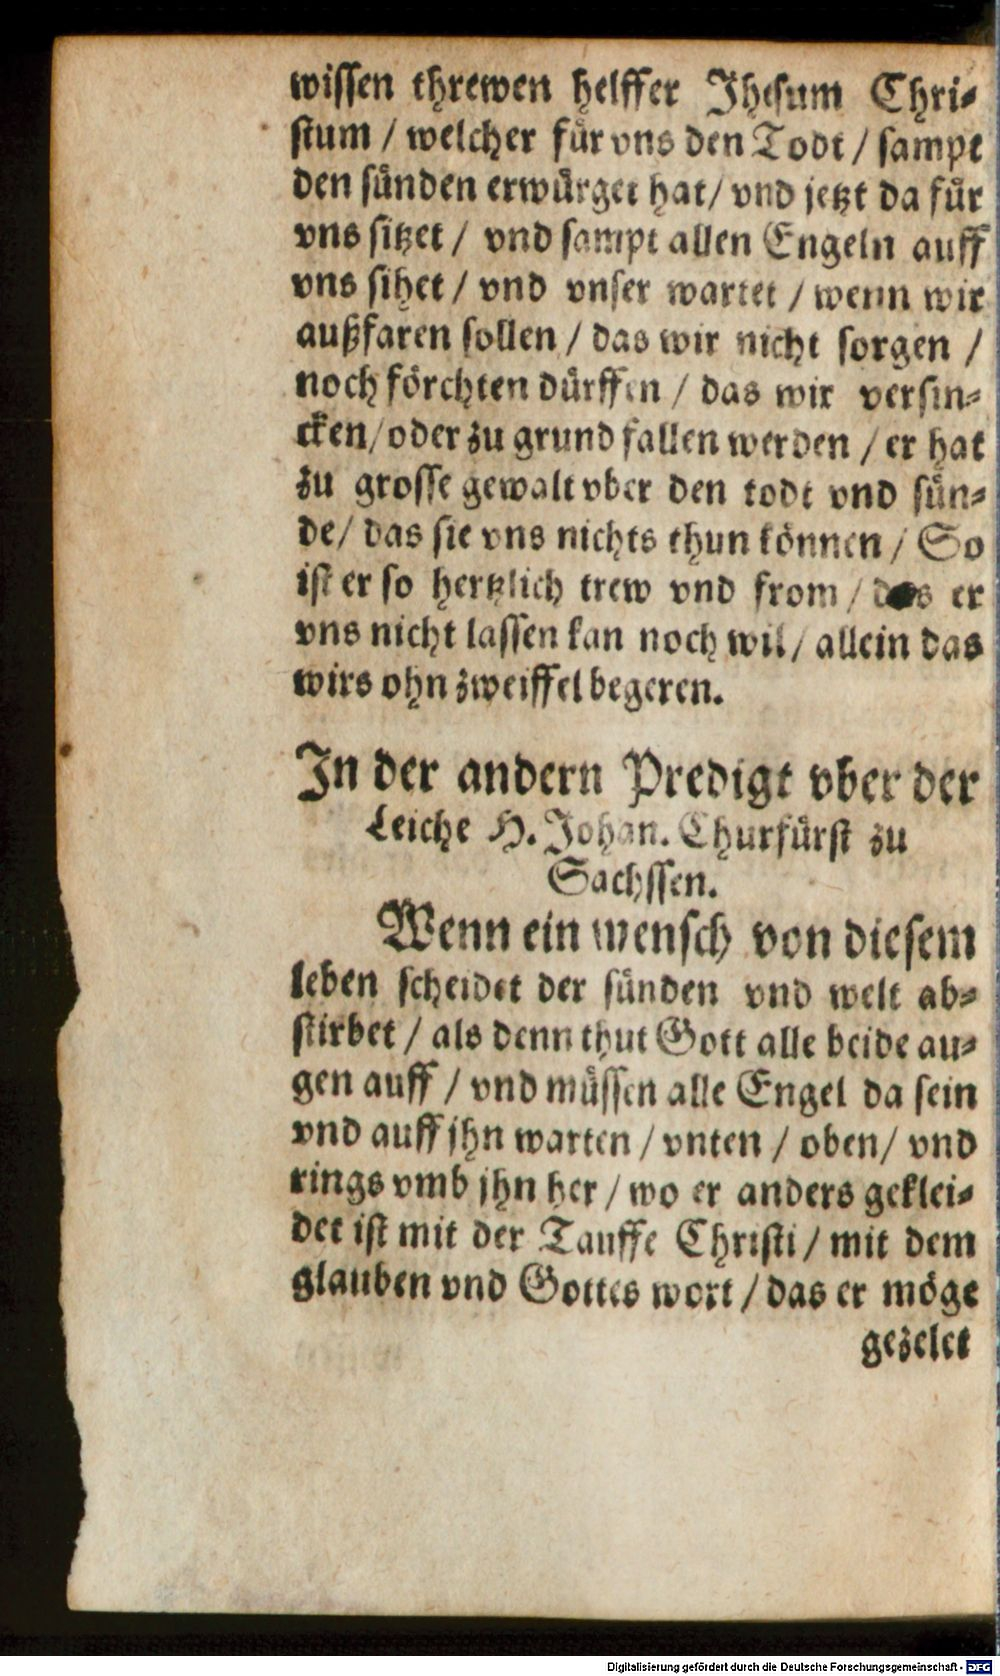 wissen threwen helffer Jhesum Chri-
stum / welcher für vns den Todt / sampt
den sünden erwürget hat / vnd jetzt da für
vns sitzet / vnd sampt allen Engeln auff
vns sihet / vnd vnser wartet / wenn wir
außfaren sollen / das wir nicht sorgen /
noch förchten dürffen / das wir versin-
cken / oder zu grund fallen werden / er hat
zu grosse gewalt vber den todt vnd sün-
de / das sie vns nichts thun können / So
ist er so hertzlich trew vnd from / das er
vns nicht lassen kan noch wil / allein das
wirs ohn zweiffel begeren.
In der andern Predigt vber der
Leiche H. Johan. Churfürst zu
Sachssen.
Wenn ein mensch von diesem
leben scheidet der sünden vnd welt ab-
stirbet / als denn thut Gott alle beide au-
gen auff / vnd müssen alle Engel da sein
vnd auff jhn warten / vnten / oben / vnd
rings vmb jhn her / wo er anders geklei-
det ist mit der Tauffe Christi / mit dem
glauben vnd Gottes wort / das er möge
gezelet
Digitalisierung gefördert durch die Deutsche Forschungsgemeinschaft - DFG